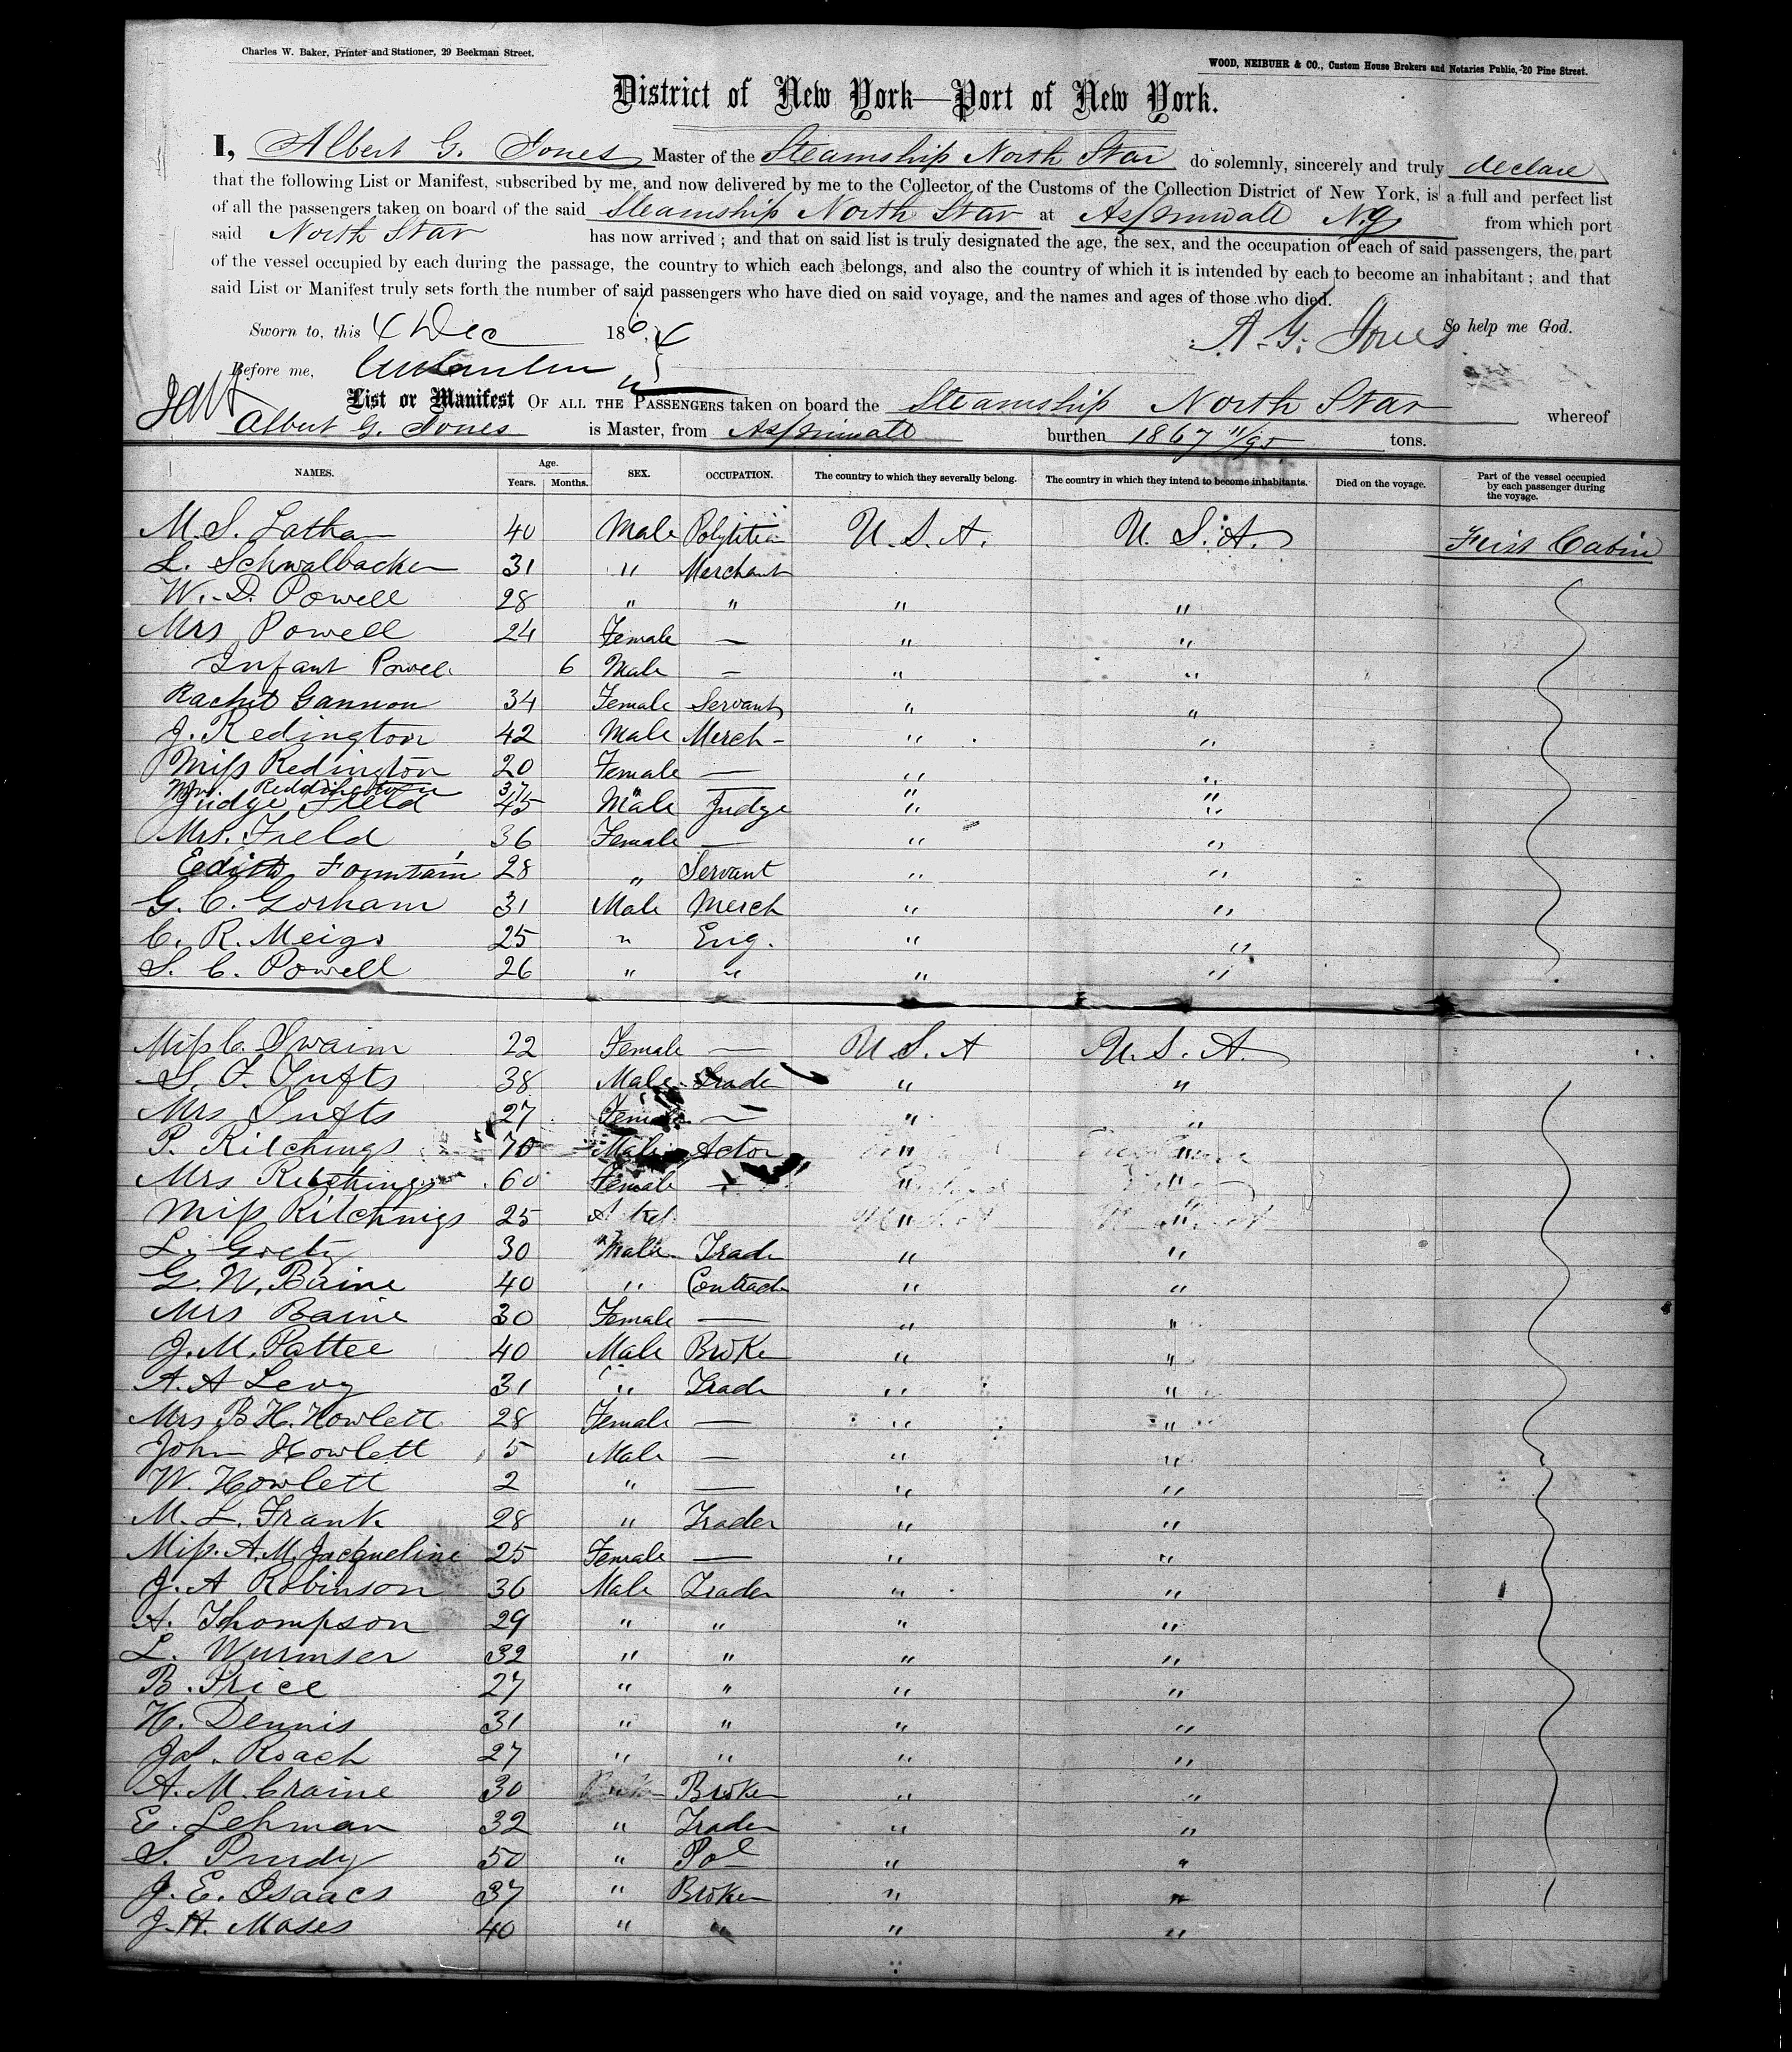 Charles W. Baker, Printer and Stationer, 29 Beekman Street.
WOOD, NEIBUHR & CO., Custom House Brokers and Notaries Public, 20 Pine Street.
District of New York—Port of New York.
I, Albert G. Jones Master of the Steamship North Star do solemnly, sincerely and truly declare
that the following List or Manifest, subscribed by me, and now delivered by me to the Collector of the Customs of the Collection District of New York, is a full and perfect list
of all the passengers taken on board of the said Steamship North Star at Aspinwall N.G. from which port
said North Star has now arrived; and that on said list is truly designated the age, the sex, and the occupation of each of said passengers, the part
of the vessel occupied by each during the passage, the country to which each belongs, and also the country of which it is intended by each to become an inhabitant; and that
said List or Manifest truly sets forth the number of said passengers who have died on said voyage, and the names and ages of those who died.
So help me God.
Sworn to, this 4 Dec 1864 A. G. Jones
Before me,
List or Manifest OF ALL THE PASSENGERS taken on board the Steamship North Star whereof
Albert G. Jones is Master, from Aspinwall burthen 1867 11/95 tons.
NAMES. Age. Years. Months. SEX. OCCUPATION. The country to which they severally belong. The country in which they intend to become inhabitants. Died on the voyage. Part of the vessel occupied by each passenger during the voyage.
M. S. Latham 40 Male U.S.A. U.S.A. First Cabin
L. Schwalbacker 31 " Merchant
W. D. Powell 28 " " " "
Mrs Powell 24 Female — " "
Infant Powell 6 Male — " "
Rachel Gannon 34 Female Servant " "
J. Redington 42 Male Merch - " "
Miss Redington 20 Female — " "
Mrs. Reddington 37 " — " "
Judge Field 45 Male Judge " "
Mrs. Field 36 Female — " "
Edith Fountain 28 " Servant " "
G. C. Gorham 31 Male Merch " "
C. R. Meigs 25 " Eng. " "
S. C. Powell 26 " " " "
Miss C. Swaim 22 Female — U.S.A U.S.A.
S. F. Tufts 38 Male Trade " "
Mrs Tufts 27 Female — " "
P. Ritchings 70 Male Actor " "
Mrs Ritchings 60 Female — " "
Miss Ritchings 25 " "
L. Goetz 30 Male Trade " "
G. W. Baine 40 " Contracter " "
Mrs Baine 30 Female — " "
J. M. Pattee 40 Male Broker " "
A. A Levy 31 " Trade " "
Mrs B H. Howlett 28 Female — " "
John Howlett 5 Male — " "
W. Howlett 2 " — " "
M. L. Frank 28 " Trader " "
Miss. A. M. Jacqueline 25 Female — " "
J. A Robinson 36 Male Trader " "
A. Thompson 29 " " " "
L. Wurmser 32 " " " "
B. Price 27 " " " "
H. Dennis 31 " " " "
Jas. Roach 27 " " " "
A. M. Craine 30 " Broker " "
E. Lehman 32 " Trader " "
S. Purdy 50 " Pol " "
J. E. Isaacs 37 " Broker " "
J. H. Moses 40 " " " "